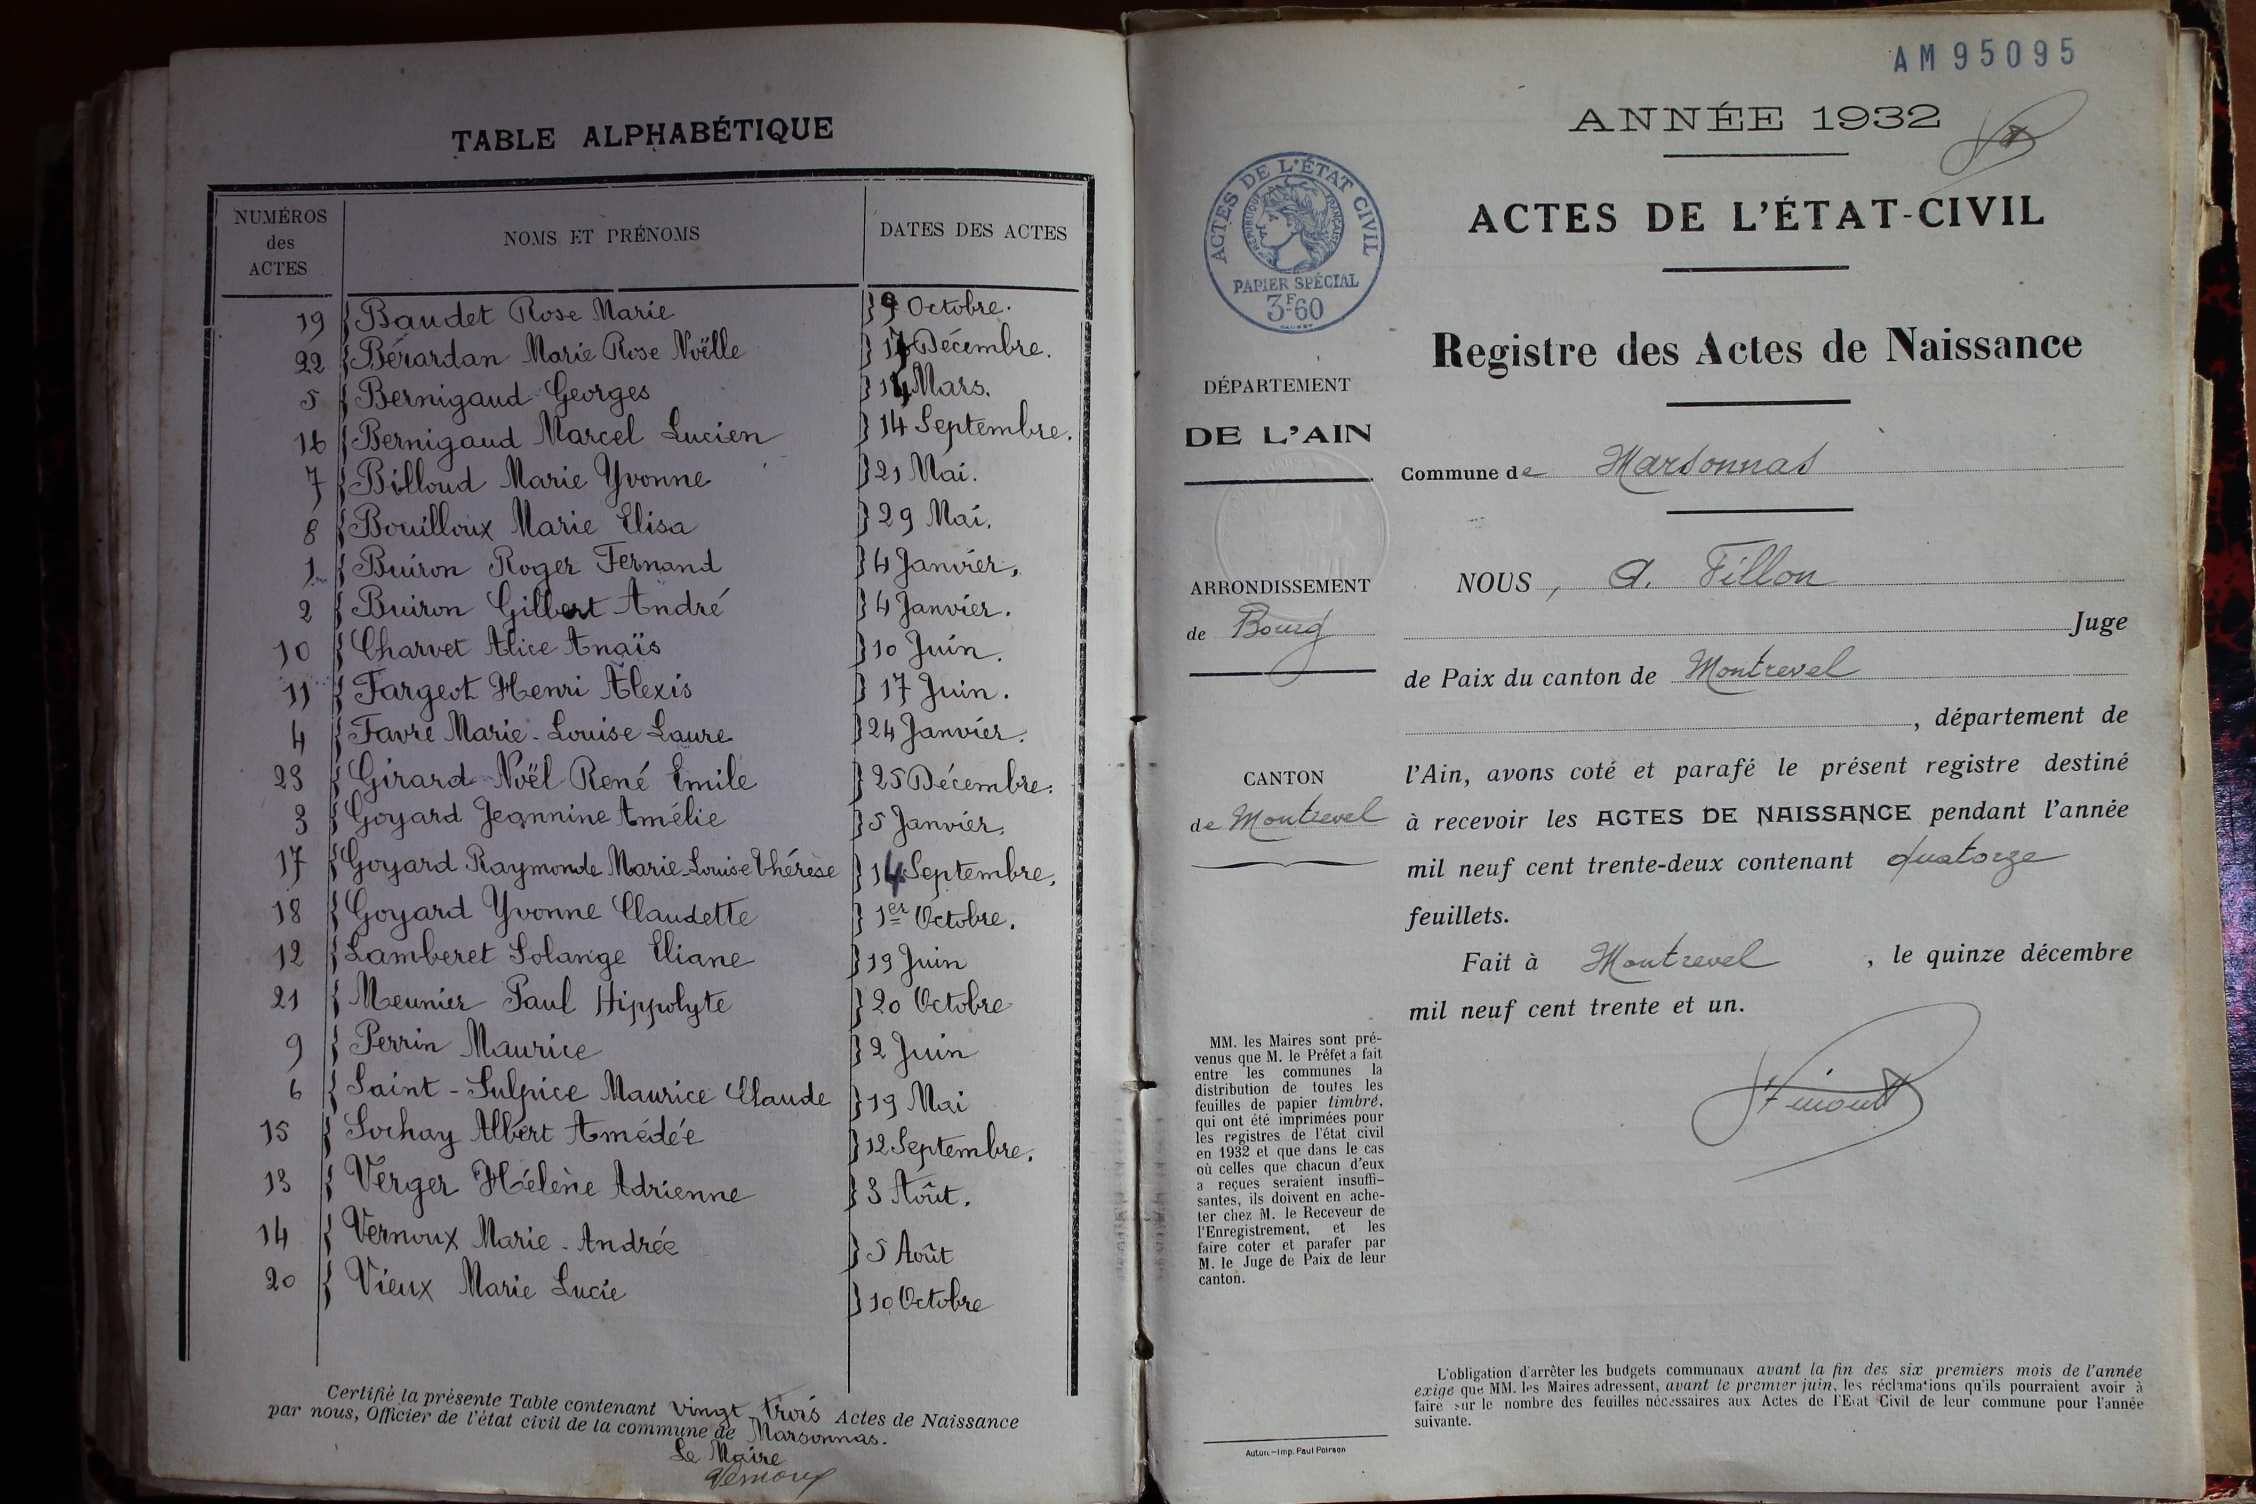 TABLE ALPHABÉTIQUE
NUMÉROS des ACTES NOMS ET PRÉNOMS DATES DES ACTES
19 Baudet Rose Marie 9 Octobre.
22 Bérardan Marie Rose Noëlle Décembre.
5 Bernigaud Georges 14 Mars.
16 Bernigaud Marcel Lucien 14 Septembre.
7 Billoud Marie Yvonne 21 Mai.
8 Bouilloux Marie Elisa 29 Mai.
1 Buiron Roger Fernand 4 Janvier.
2 Buiron Gilbert André 4 Janvier.
10 Charvet Alice Anaïs 10 Juin.
11 Fargeot Henri Alexis 17 Juin.
4 Favre Marie-Louise Laure 24 Janvier.
23 Girard Noël René Emile 25 Décembre.
3 Goyard Jeannine Amélie 5 Janvier.
17 Goyard Raymonde Marie-Louise Thérèse 14 Septembre.
18 Goyard Yvonne Claudette 1er Octobre.
12 Lamberet Solange Eliane 19 Juin
21 Meunier Paul Hippolyte 20 Octobre
9 Perrin Maurice 2 Juin
6 Saint-Sulpice Maurice Claude 19 Mai
15 Sochay Albert Amédée 12 Septembre.
13 Verger Hélène Adrienne 3 Août.
14 Vernoux Marie-Andrée 5 Août
20 Vieux Marie Lucie 10 Octobre
Certifié la présente Table contenant vingt trois Actes de Naissance
par nous, Officier de l'état civil de la commune de Marsonnas.
Le Maire
Vernoux
AM 95095
ANNÉE 1932
ACTES DE L'ÉTAT CIVIL
RÉPUBLIQUE FRANÇAISE
PAPIER SPÉCIAL
3F60
ACTES DE L'ÉTAT-CIVIL
Registre des Actes de Naissance
DÉPARTEMENT
DE L'AIN
Commune de Marsonnas
ARRONDISSEMENT
de Bourg
CANTON
de Montrevel
NOUS, A. Fillon
Juge
de Paix du canton de Montrevel
, département de
l'Ain, avons coté et parafé le présent registre destiné
à recevoir les ACTES DE NAISSANCE pendant l'année
mil neuf cent trente-deux contenant quatorze
feuillets.
Fait à Montrevel, le quinze décembre
mil neuf cent trente et un.
MM. les Maires sont pré-
venus que M. le Préfet a fait
entre les communes la
distribution de toutes les
feuilles de papier timbré,
qui ont été imprimées pour
les registres de l'état civil
en 1932 et que dans le cas
où celles que chacun d'eux
a reçues seraient insuffi-
santes, ils doivent en ache-
ter chez M. le Receveur de
l'Enregistrement, et les
faire coter et parafer par
M. le Juge de Paix de leur
canton.
L'obligation d'arrêter les budgets communaux avant la fin des six premiers mois de l'année
exige que MM. les Maires adressent, avant le premier juin, les réclamations qu'ils pourraient avoir à
faire sur le nombre des feuilles nécessaires aux Actes de l'Etat Civil de leur commune pour l'année
suivante.
Autun.-Imp. Paul Poirson